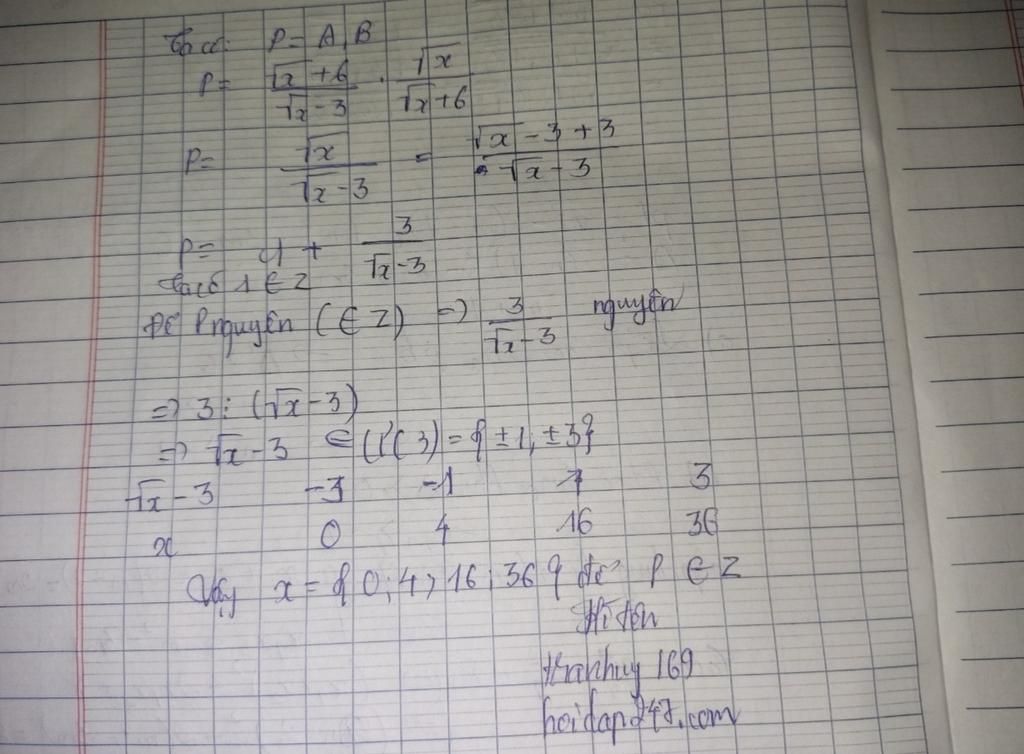 Ta có: P = A.B
P = \frac{\sqrt{x}+6}{\sqrt{x}-3} . \frac{\sqrt{x}}{\sqrt{x}+6}
P = \frac{\sqrt{x}}{\sqrt{x}-3} = \frac{\sqrt{x}-3+3}{\sqrt{x}-3}
P = 1 + \frac{3}{\sqrt{x}-3}
Ta có 1 ∈ Z
Để P nguyên (∈ Z) => \frac{3}{\sqrt{x}-3} nguyên
=> 3 ⋮ (√x - 3)
=> √x - 3 ∈ Ư(3) = { ±1, ±3}
√x - 3 -3 -1 1 3
x 0 4 16 36
Vậy x = { 0; 4; 16; 36 } để P ∈ Z
thanhuy 169
hoidap247.com